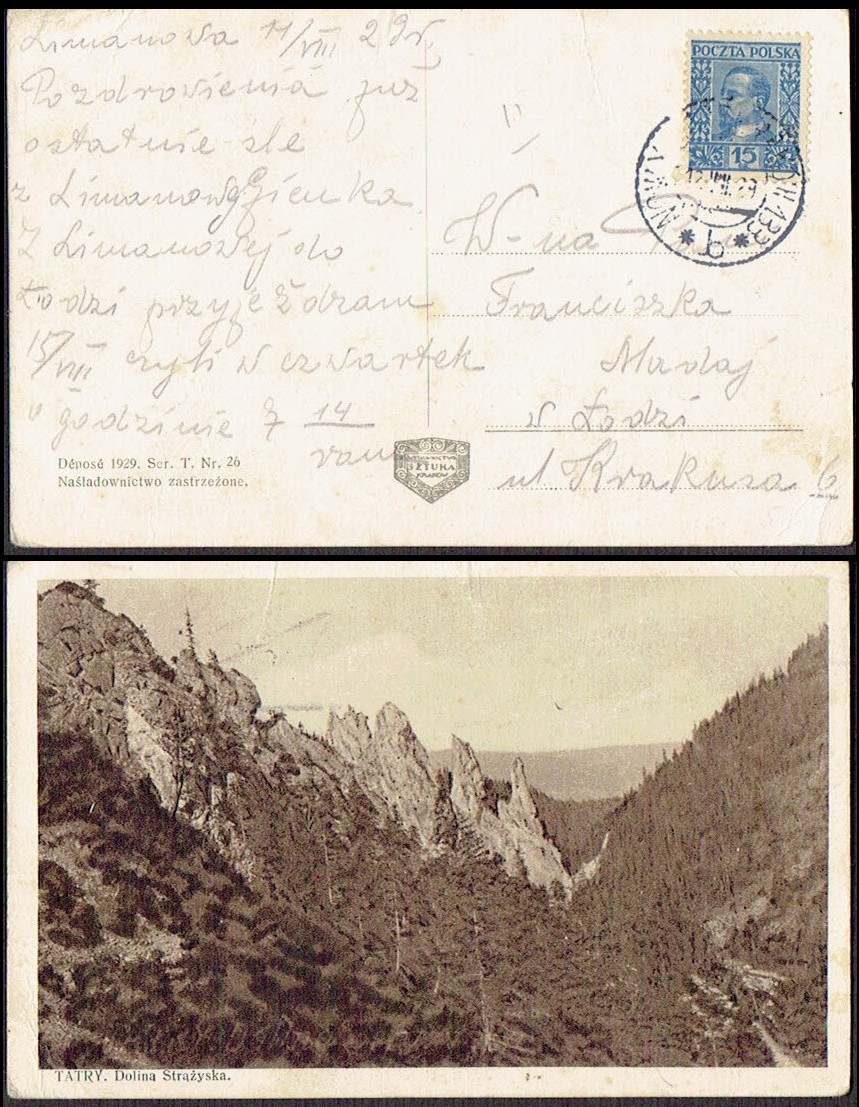 Limanowa 11/VIII 29r.
Pozdrowienia już
ostatnie śle
z Limanowej Gienka
Z Limanowej do
Łodzi przyjeżdżam
15/VIII czyli w czwartek
o godzinie 7 14
rano
Déposé 1929. Ser. T. Nr. 26
Naśladownictwo zastrzeżone.
WYDAWNICTWO
SZTUKA
KRAKÓW
POCZTA POLSKA
15
133
W-na
Franciszka
Madaj
w Łodzi
ul Krakusa 6
TATRY. Dolina Strążyska.